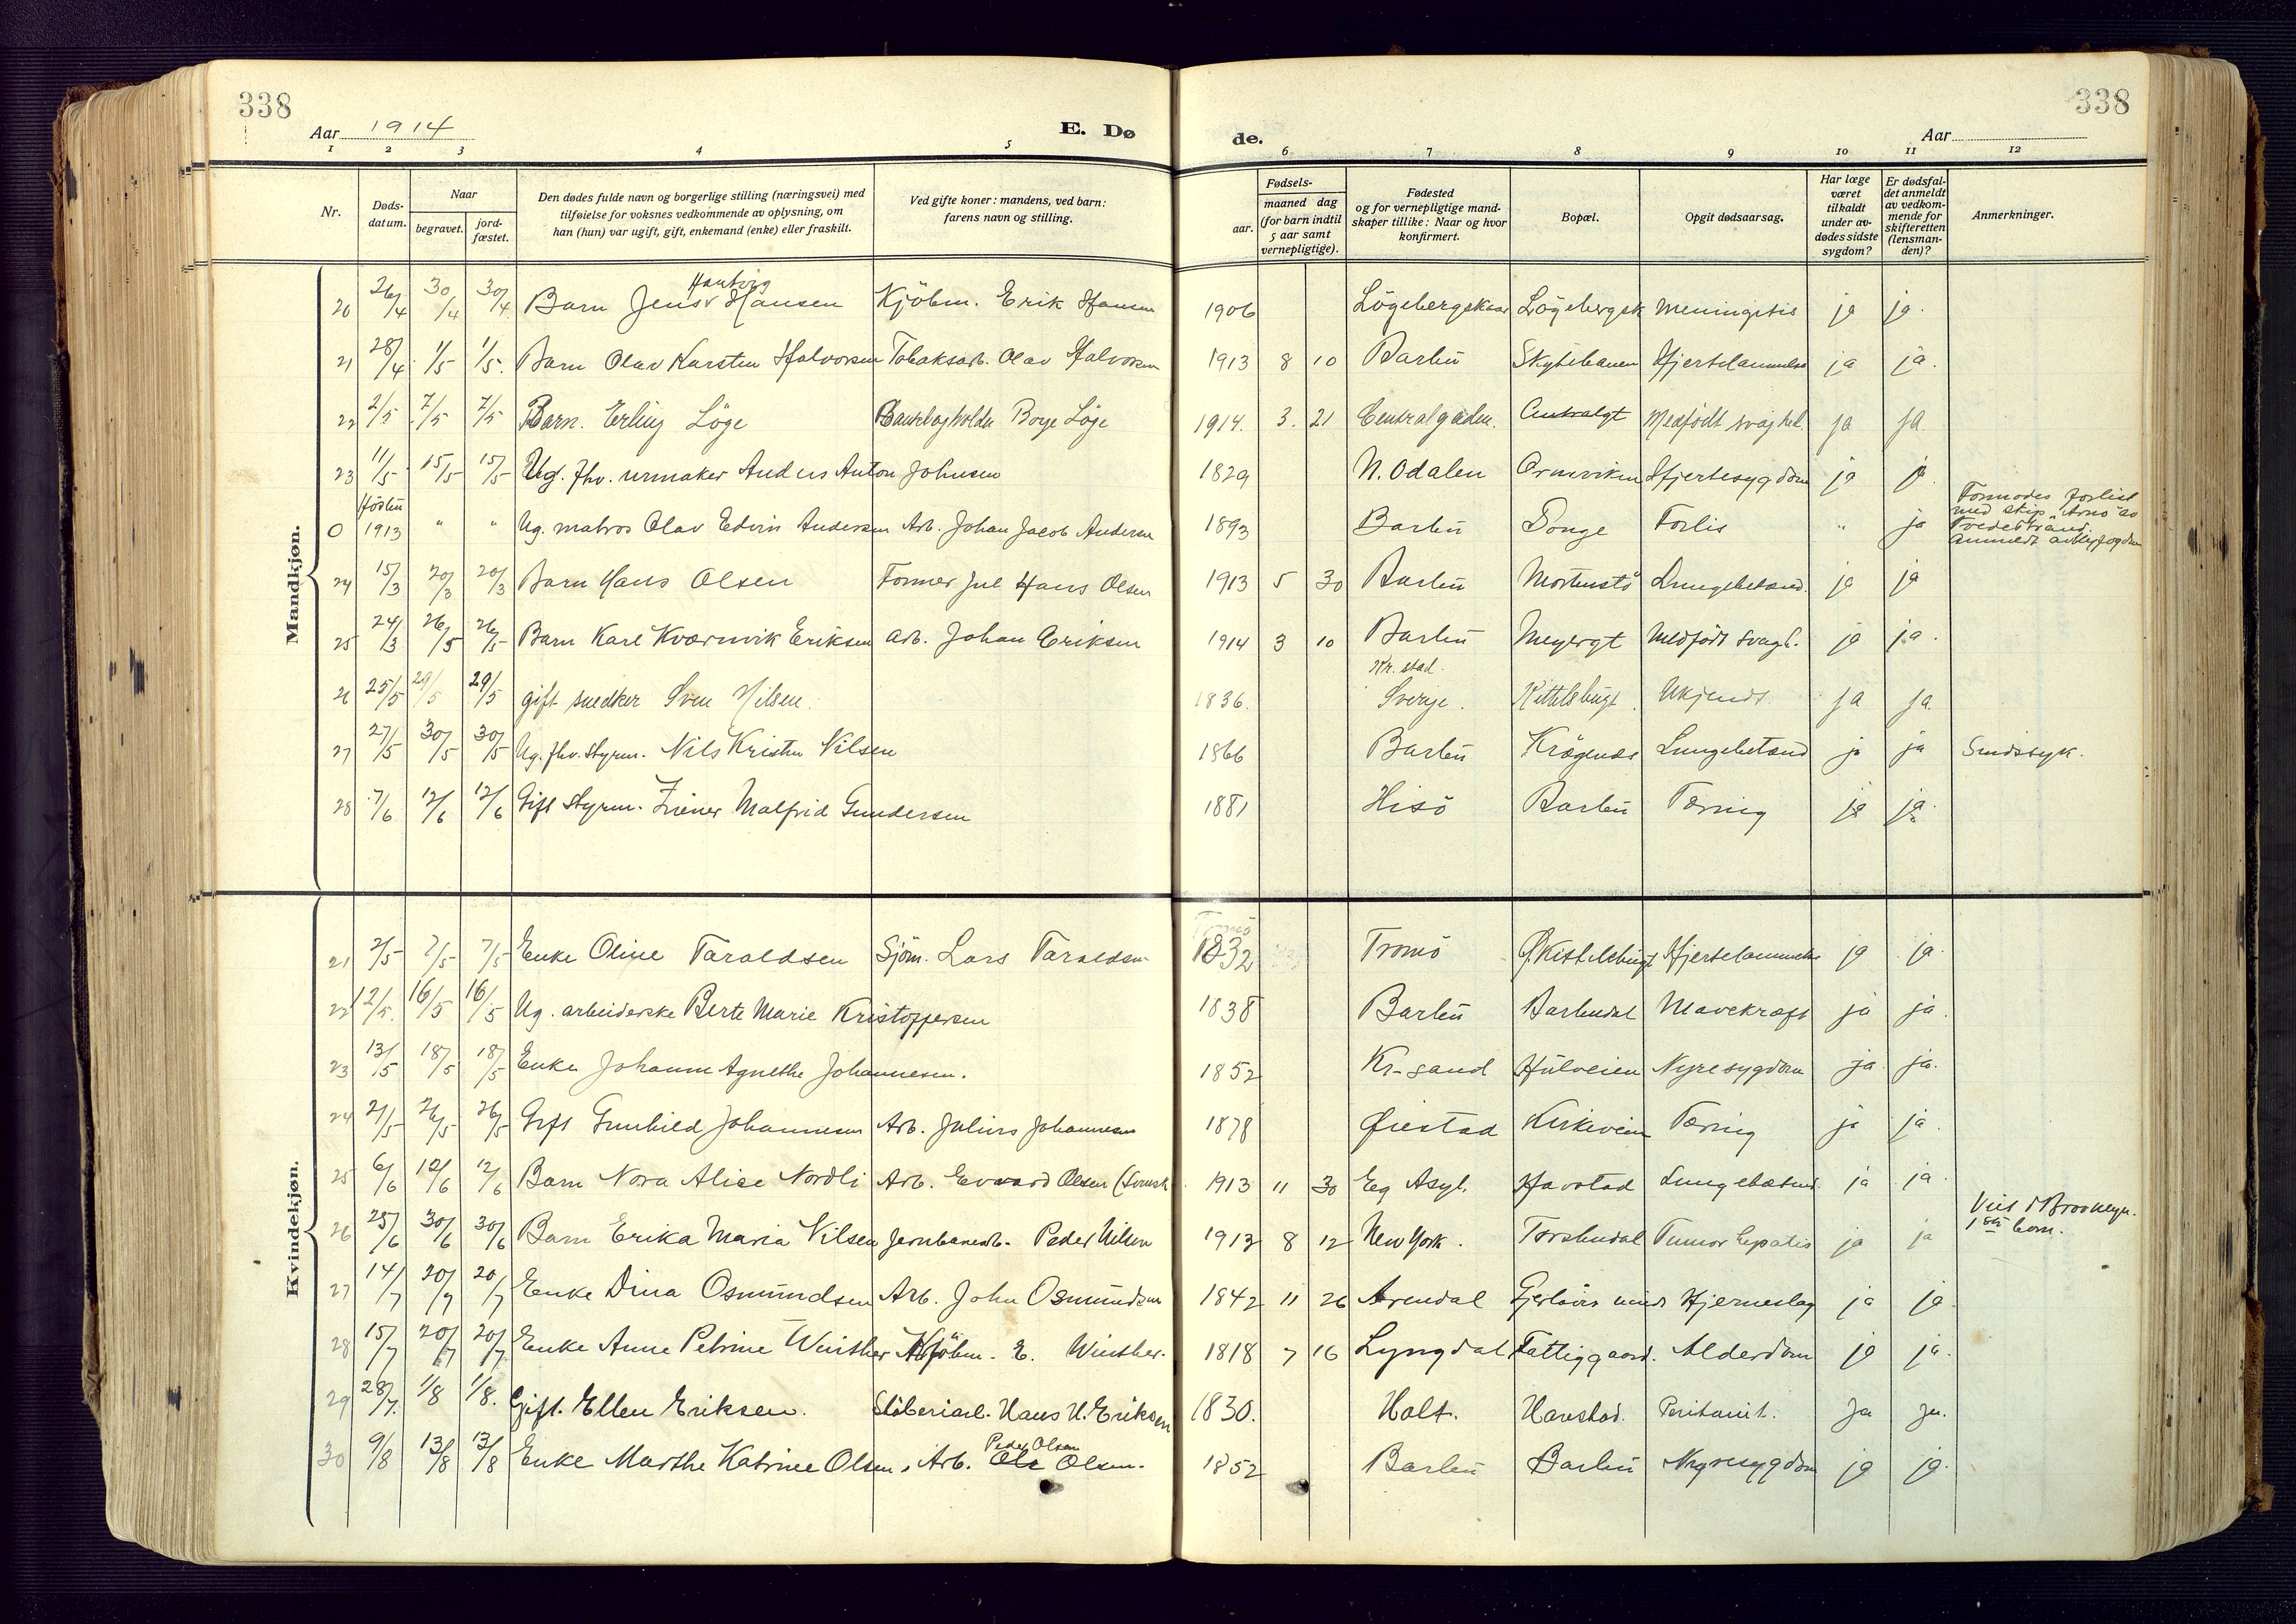 338
338
Aar 1914
E. Dø
de.
Aar
1 2 3 4 5 6 7 8 9 10 11 12
Nr.
Døds-
datum.
Naar
begravet.
jord-
fæstet.
Den dødes fulde navn og borgerlige stilling (næringsvei) med
tilføielse for voksnes vedkommende av oplysning, om
han (hun) var ugift, gift, enkemand (enke) eller fraskilt.
Ved gifte koner: mandens, ved barn:
farens navn og stilling.
Fødsels-
aar.
maaned dag
(for barn indtil
5 aar samt
vernepligtige).
Fødested
og for vernepligtige mand-
skaper tillike: Naar og hvor
konfirmert.
Bopæl.
Opgit dødsaarsag.
Har læge
været
tilkaldt
under av-
dødes sidste
sygdom?
Er dødsfal-
det anmeldt
av vedkom-
mende for
skifteretten
(lensman-
den)?
Anmerkninger.
Mandkjøn.
20 26/4 30/4 30/4 Barn Jens Hansen Kjöbm. Erik Hansen 1906 Lögebergskaar Lögebergsk Meningitis ja ja.
21 28/4 1/5 1/5. Barn Olav Karsten Halvorsen Tobaksarb. Olav Halvorsen 1913 8 10 Barbu Skytebanen Hjertelammelse ja ja.
22 2/5 7/5 7/5 Barn. Erling Löge Borge Löge 1914. 3. 21 Centralgaden. Centralgt Medfödt svaghed. ja ja
23 11/5 15/5 15/5 Ug. fhv. urmaker Anders Anton Johnsen 1829 N. Odalen Ormviken Hjertesygdom ja ja
Hösten
0 1913 " " Ug. matros Olav Edvin Andersen Arb. Johan Jacob Andersen 1893 Barbu Songe Forlis " ja Formodes forlist
med skip "Arno" av
Tvedestrand.
24 15/3 20/3 20/3 Barn Hans Olsen Former Jul Hans Olsen 1913 5 30 Barbu Lungebetænd. ja ja
25 24/3 26/5 26/5 Barn Karl Kværnvik Eriksen Arb. Johan Eriksen 1914 3 10 Barbu Meyergt Medfödt svagh. ja ja.
Kr. stad.
26 25/5 29/5 29/5 gift snedker Sven Nilsen. 1836. Sverige. Kittelsbugt. Ukjendt ja ja.
27 27/5 30/5 30/5 Ug. fhv. styrm. Nils Kristen Nilsen 1866 Barbu Krögenes Lungebetænd ja ja Sindssyk.
28 7/6 12/6 12/6 Gift styrm. Malfrid Gundersen 1881 Hisö Barbu Tæring ja ja.
Kvindekjøn.
21 2/5 7/5 7/5 Enke Oline Taraldsen Sjöm. Lars Taraldsen 1832 Tromö Kittelsbugt Hjertelammelse ja ja.
22 12/5. 16/5 16/5 Ug. arbeiderske Berte Marie Kristoffersen 1838 Barbu Barbudal Mavekræft ja ja.
23 13/5 18/5 18/5 Enke Johanne Agnethe Johannesen. 1852 Kr-sand Hulveien Nyresygdom ja ja.
24 21/5 26/5 26/5 Gift Gunhild Johannesen Arb. Julius Johannesen 1878 Øiestad Kirkeveien Tæring ja ja.
25 6/6 12/6 12/6 Barn Nora Alice Nordli Arb. Edvard Olsen (Svensk 1913 11 30 Eg Asyl. Havstad Lungebetænd. ja ja.
26 25/6 30/6 30/6 Barn Erika Maria Nilsen Jernbanearb. Peder Nilsen 1913 8 12 New York. Torsbudal Tumor hepatis ja ja Viet i Brooklyn.
1ste barn.
27 14/7 20/7 20/7 Enke Dina Osmundsen Arb. John Osmundsen 1842 11 26 Arendal Hjerneslag ja ja.
28 15/7 20/7 20/7 Enke Anne Petrine Winther Kjöbm. E. Winther. 1818 7 16 Lyngdal Fattiggaard. Alderdom ja ja.
29 28/7. 1/8 1/8. Gift. Ellen Eriksen. Støberiarb. Hans H. Eriksen 1830. Holt. Havstad. Peritonit. ja ja.
Peder Olsen
30 9/8 13/8 13/8 Enke Marthe Katrine Olsen. Arb. Ole Olsen. 1852 Barbu Barbu Nyresygdom ja ja.